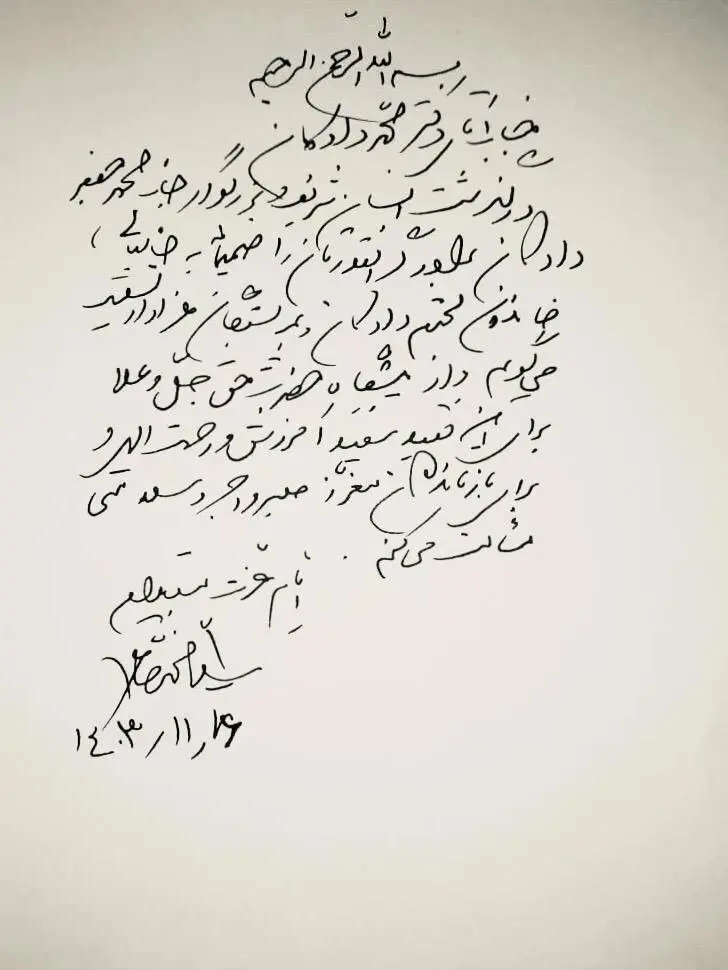 بسم الله الرحمن الرحیم
جناب آقای دکتر محمد دادکان
درگذشت انسان شریف و بزرگوار جناب محمد جعفر
دادکان برادر گرانقدرتان را صمیمانه به جنابعالی،
خاندان محترم دادکان و بستگان عزادار تسلیت
می‌گویم و از پیشگاه حضرت حق جلّ و علا
برای این فقید سفید آمرزش و رحمت الهی و
برای بازماندگان معزز صبر و اجر و سلامتی
مسئلت می‌کنم.
ایام عزت مستدام
سید محمد خاتمی
۱۴۰۳ر۱۱ر۲۶